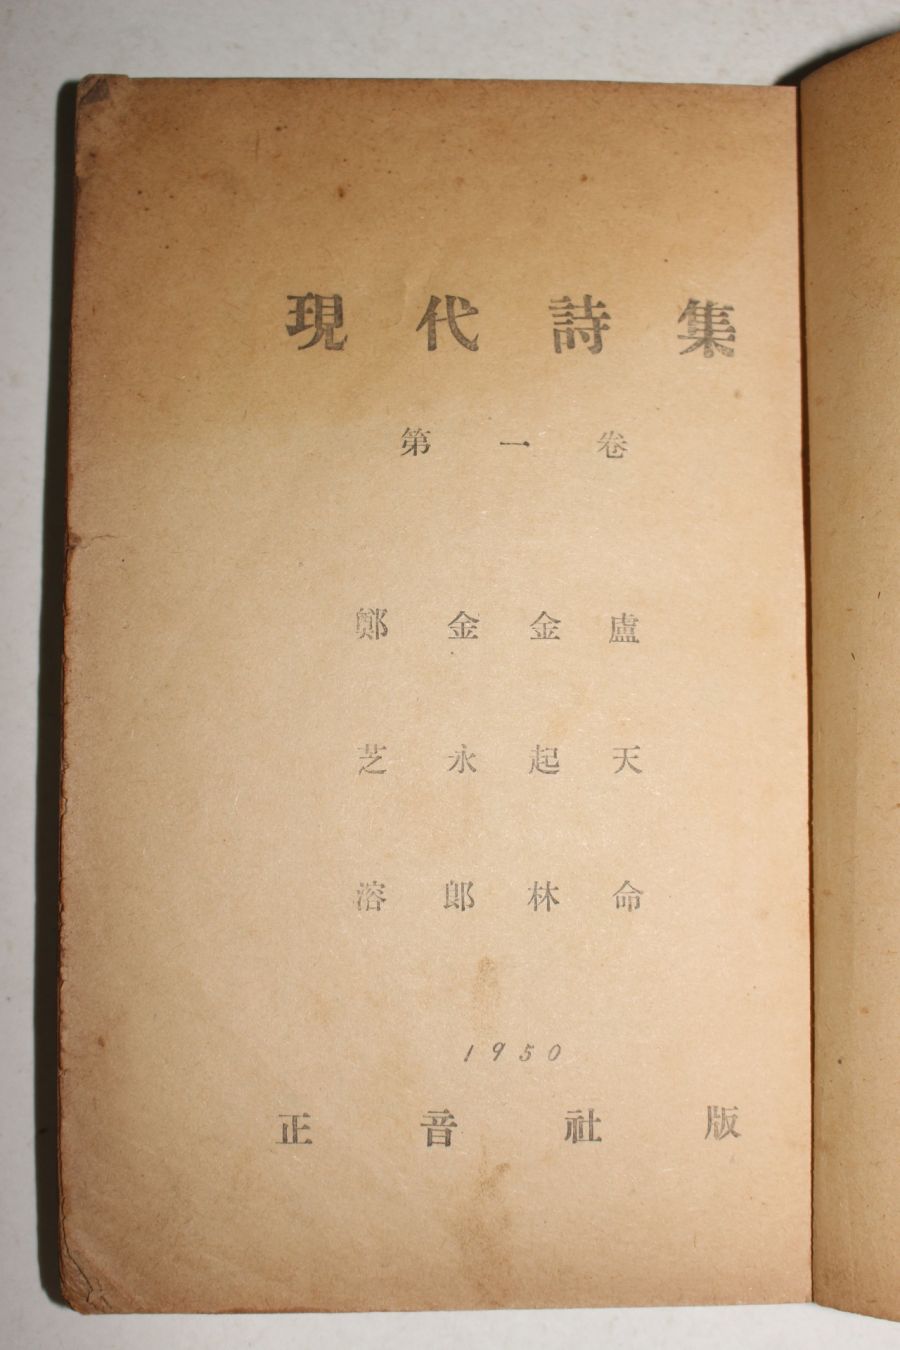 現代詩集
第一卷
鄭芝溶
金永郎
金起林
盧天命
1950
正音社版